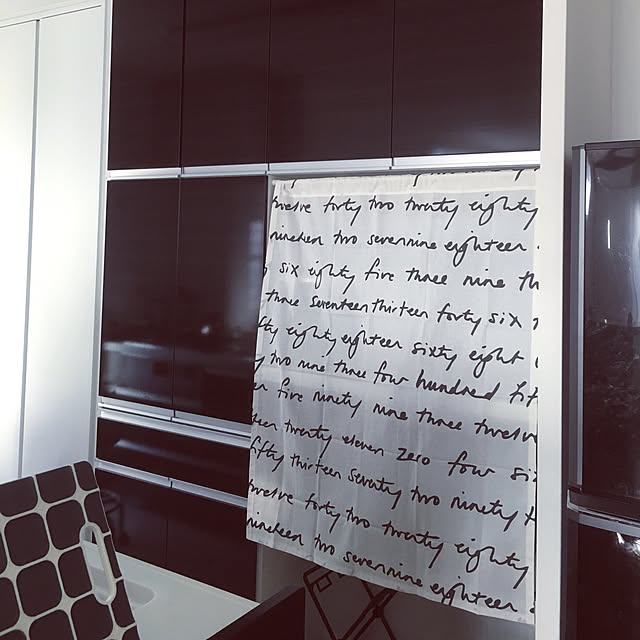 twelve forty two twenty eighty
nineteen two sevennine eighteen
six eighty five three nine th
three seventeen thirteen forty six
fty eighty eighteen sixty eight
y two nine three four hundred fif
n five ninety nine three twelve
teen twenty eleven zero four six
fifty thirteen seventy two ninety t
twelve forty two twenty eighty
nineteen two sevennine eighteen